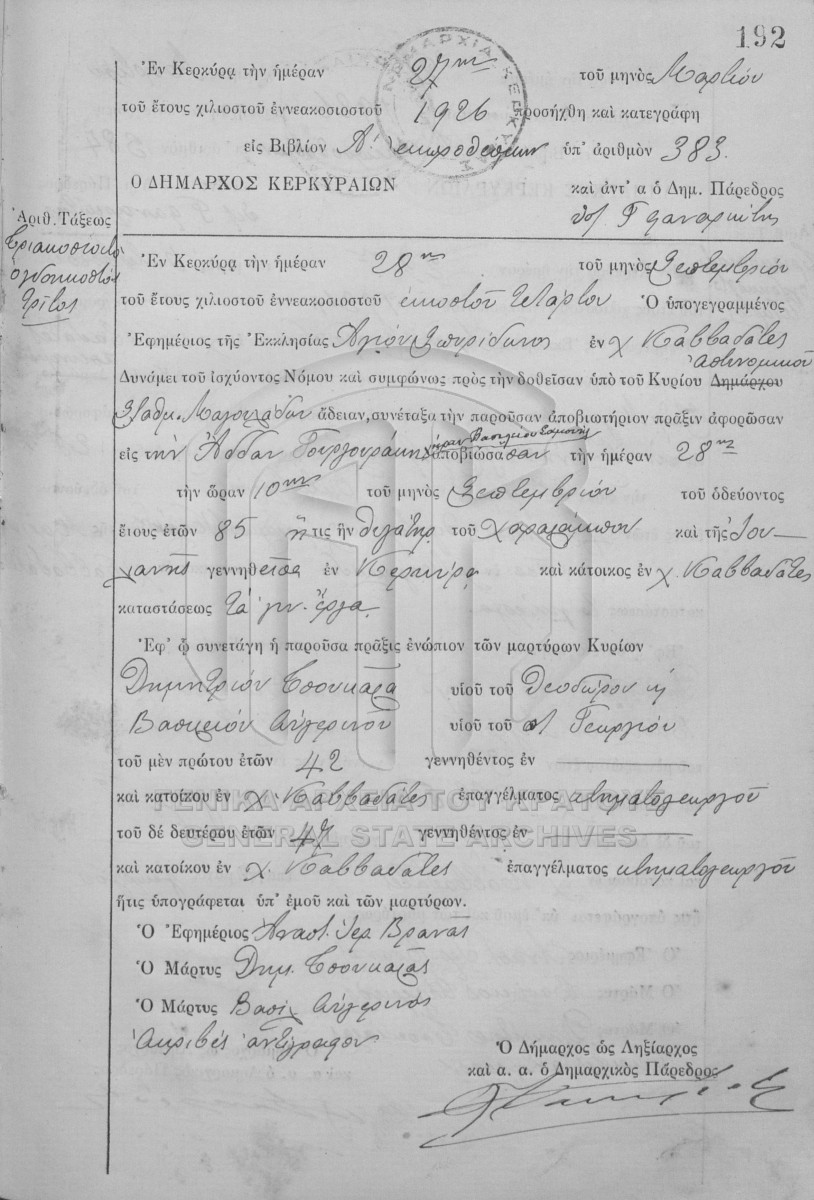 192
Ἐν Κερκύρᾳ τὴν ἡμέραν 27ην τοῦ μηνὸς Μαρτίου
τοῦ ἔτους χιλιοστοῦ ἐννεακοσιοστοῦ 1926 προσήχθη καὶ κατεγράφη
εἰς Βιβλίον Α΄ ὑπ' ἀριθμὸν 383.
Ο ΔΗΜΑΡΧΟΣ ΚΕΡΚΥΡΑΙΩΝ καὶ ἀντ' α ὁ Δημ. Πάρεδρος
Ἀριθ. Τάξεως
Τριακοσιοστὸς
ὀγδοηκοστὸς
τρίτος
Ἐν Κερκύρᾳ τὴν ἡμέραν 28ην τοῦ μηνὸς Σεπτεμβρίου
τοῦ ἔτους χιλιοστοῦ ἐννεακοσιοστοῦ εἰκοστοῦ τετάρτου Ὁ ὑπογεγραμμένος
Ἐφημέριος τῆς Ἐκκλησίας Ἁγίου Σπυρίδωνος ἐν χ. Καββαδάτες
Ἀστυνομικοῦ
Δυνάμει τοῦ ἰσχύοντος Νόμου καὶ συμφώνως πρὸς τὴν δοθεῖσαν ὑπὸ τοῦ Κυρίου Δημάρχου
Σταθμ. Μαγουλάδων ἄδειαν, συνέταξα τὴν παροῦσαν ἀποβιωτήριον πρᾶξιν ἀφορῶσαν
χήραν Βασιλείου
εἰς τὴν ἀποβιώσασαν τὴν ἡμέραν 28ην
τὴν ὥραν 10ην τοῦ μηνὸς Σεπτεμβρίου τοῦ ὁδεύοντος
ἔτους ἐτῶν 85 ἥτις ἦν θυγάτηρ τοῦ Χαραλάμπου καὶ τῆς Ἰου-
λιανῆς γεννηθεῖσα ἐν Κερκύρᾳ καὶ κάτοικος ἐν χ. Καββαδάτες
καταστάσεως τὰ γυν. ἔργα
Ἐφ' ᾧ συνετάγη ἡ παροῦσα πρᾶξις ἐνώπιον τῶν μαρτύρων Κυρίων
Δημητρίου Τσουκαλᾶ υἱοῦ τοῦ Θεοδώρου κ
Βασιλείου Αὐγερινοῦ υἱοῦ τοῦ Γεωργίου
τοῦ μὲν πρώτου ἐτῶν 42 γεννηθέντος ἐν
καὶ κατοίκου ἐν χ. Καββαδάτες ἐπαγγέλματος κτηματογεωργοῦ
ΓΕΝΙΚΑ ΑΡΧΕΙΑ ΤΟΥ ΚΡΑΤΟΥΣ
τοῦ δὲ δευτέρου ἐτῶν 47 γεννηθέντος ἐν
GENERAL STATE ARCHIVES
καὶ κατοίκου ἐν χ. Καββαδάτες ἐπαγγέλματος κτηματογεωργοῦ
ἥτις ὑπογράφεται ὑπ' ἐμοῦ καὶ τῶν μαρτύρων.
Ὁ Ἐφημέριος Ἀναστ. Ἱερ. Βρανᾶς
Ὁ Μάρτυς Δημ. Τσουκαλᾶς
Ὁ Μάρτυς Βασίλ. Αὐγερινός
Ἀκριβὲς ἀντίγραφον
Ὁ Δήμαρχος ὡς Ληξίαρχος
καὶ α. α. ὁ Δημαρχικὸς Πάρεδρος